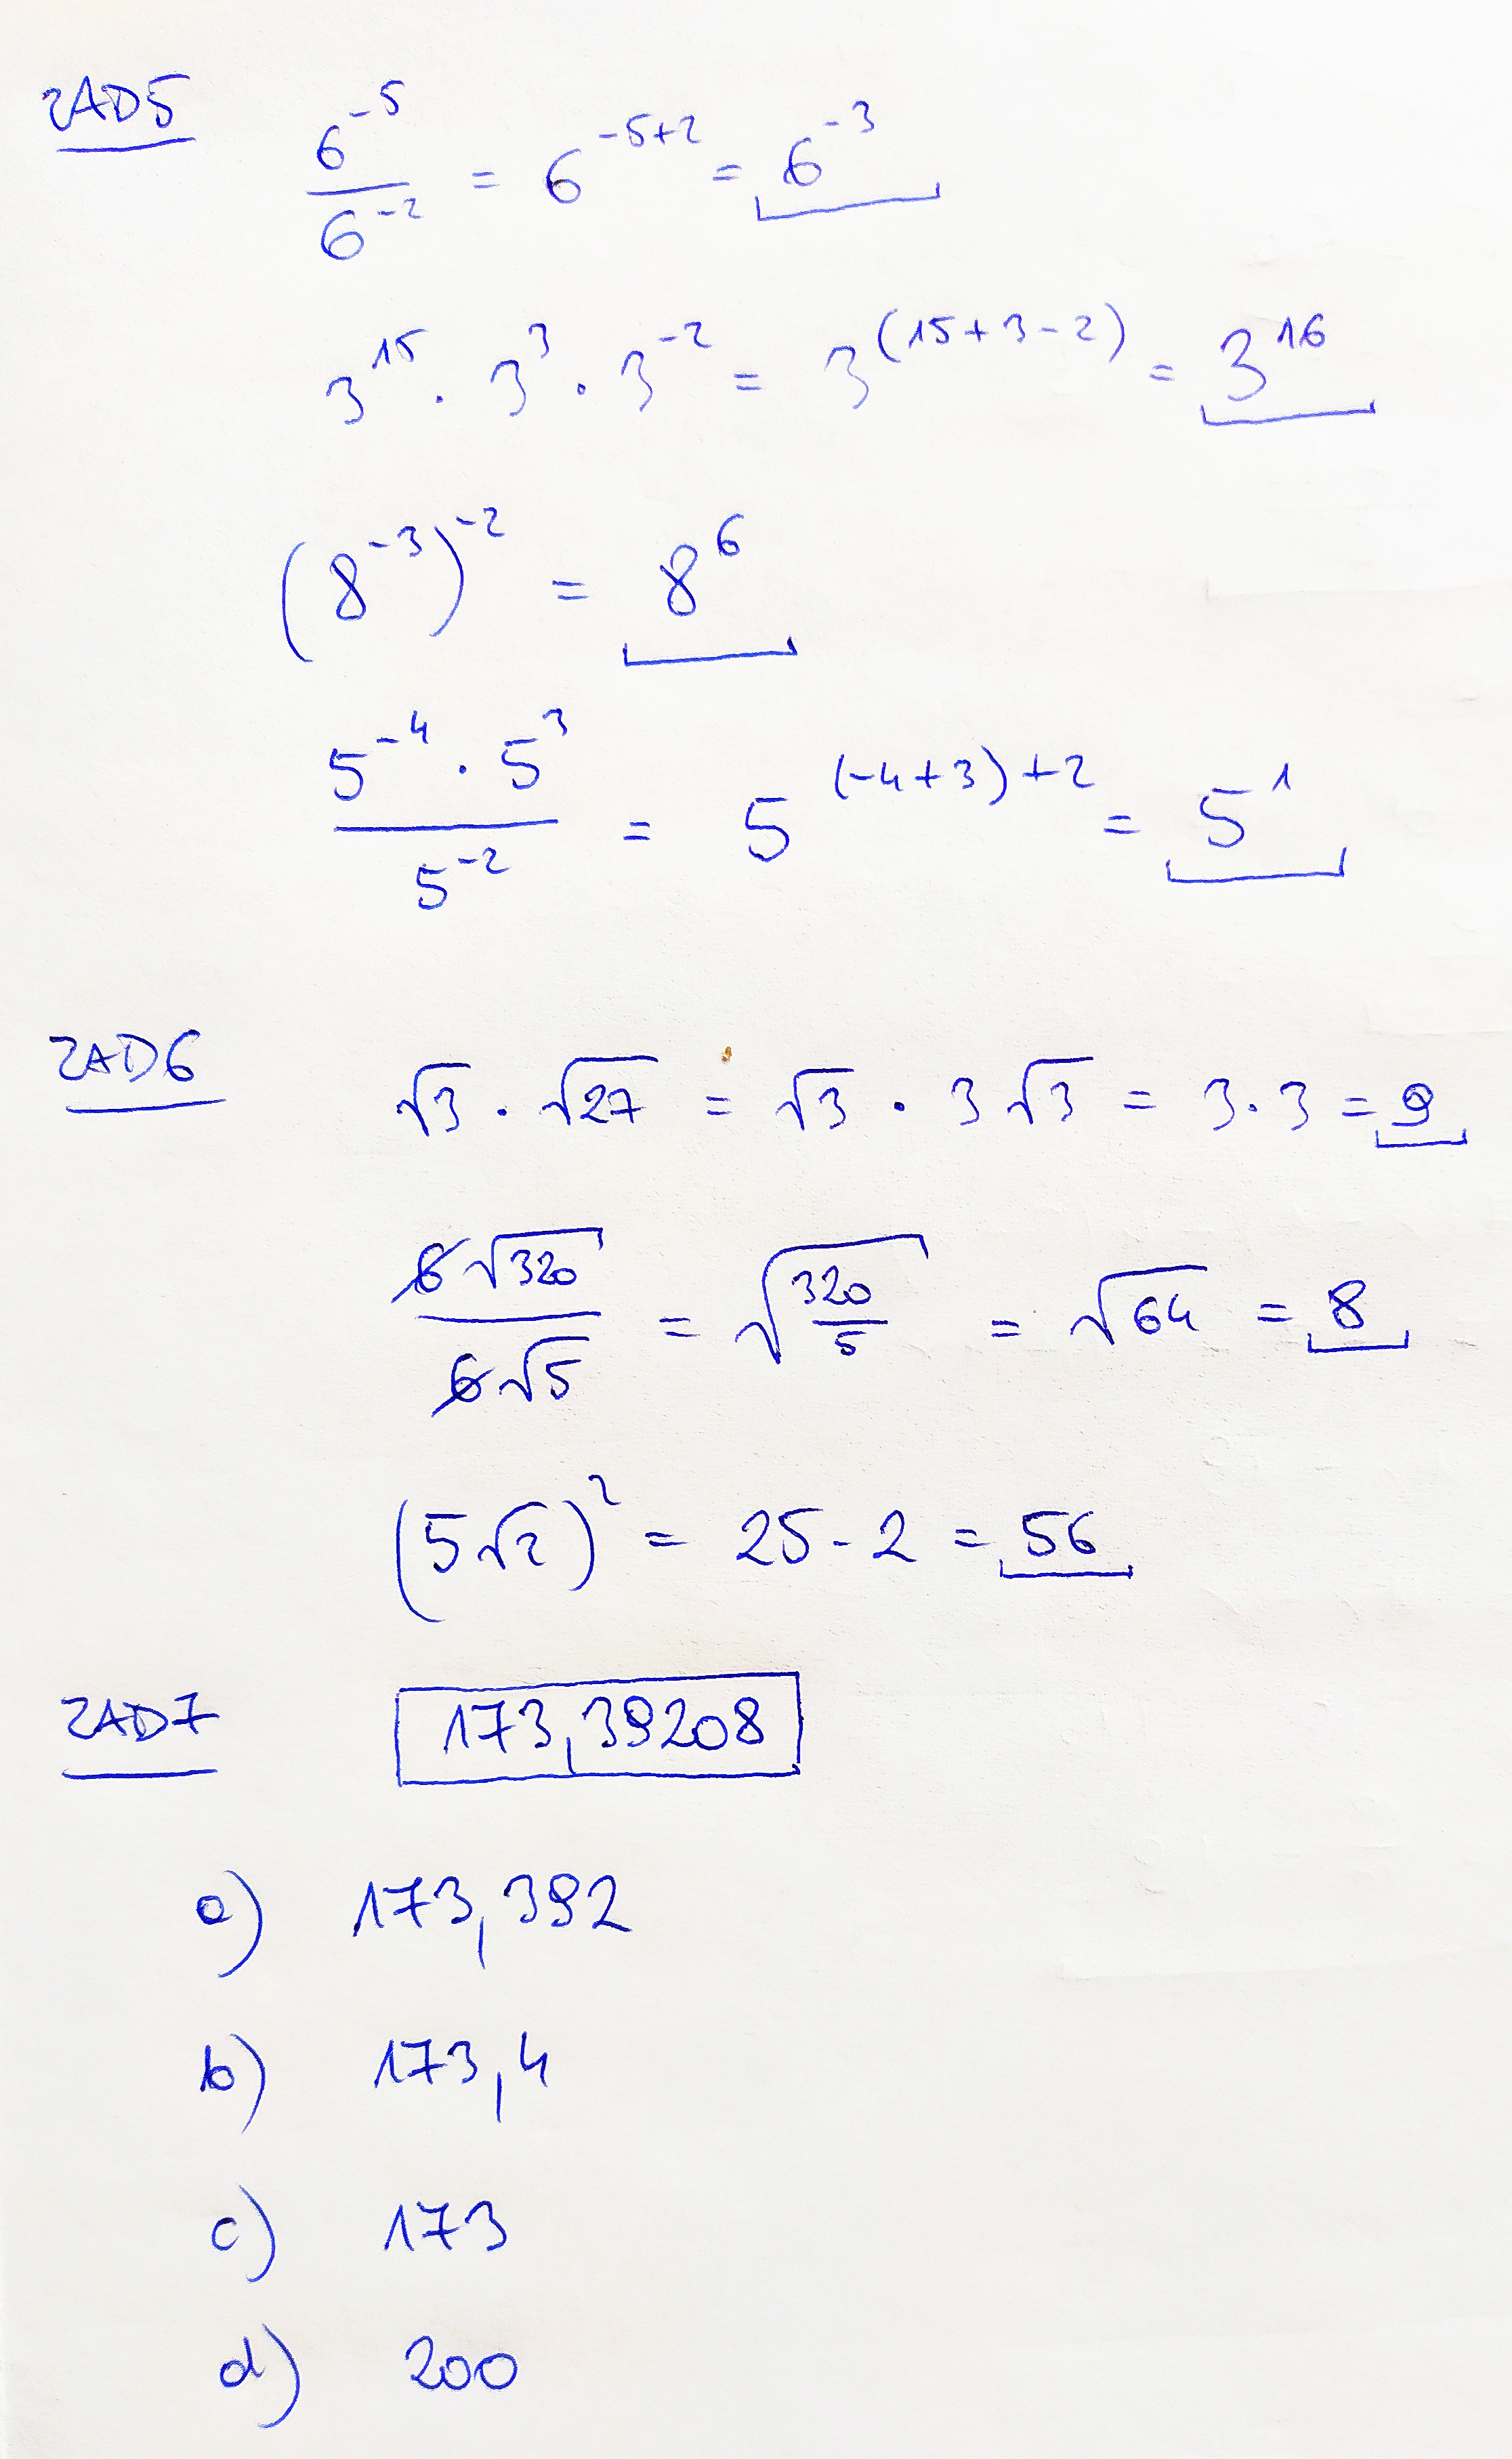 ZAD5 6^-5 / 6^-2 = 6^-5+2 = 6^-3
3^15 · 3^3 · 3^-2 = 3^(15+3-2) = 3^16
(8^-3)^-2 = 8^6
5^-4 · 5^3 / 5^-2 = 5^(-4+3)+2 = 5^1
ZAD6 √3 · √27 = √3 · 3√3 = 3·3 = 9
6√320 / 6√5 = √(320/5) = √64 = 8
(5√2)^2 = 25 - 2 = 56
ZAD7 173,39208
a) 173,392
b) 173,4
c) 173
d) 200